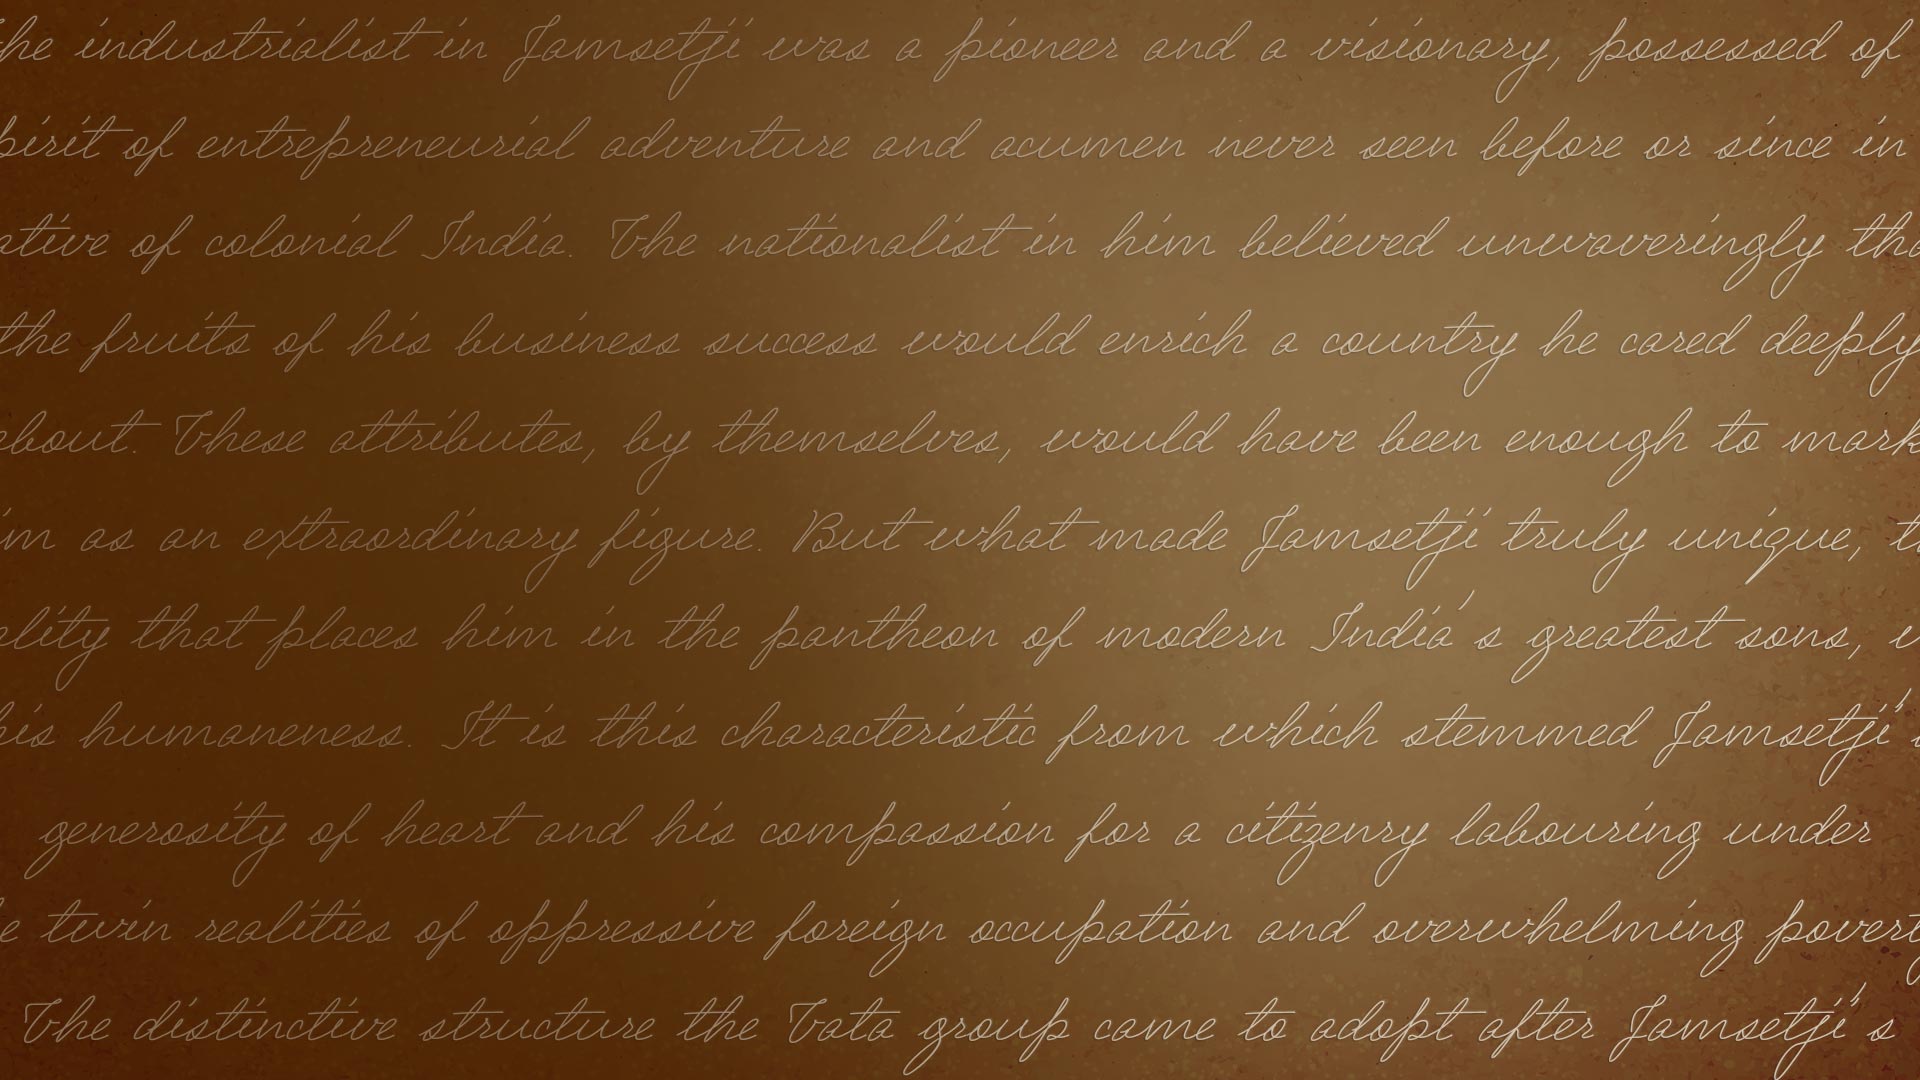 he industrialist in Jamsetji was a pioneer and a visionary, possessed of
pirit of entrepreneurial adventure and acumen never seen before or since in
ative of colonial India. The nationalist in him believed unwaveringly tha
the fruits of his business success would enrich a country he cared deeply
about. These attributes, by themselves, would have been enough to mark
im as an extraordinary figure. But what made Jamsetji truly unique, t
ality that places him in the pantheon of modern India's greatest sons, w
his humaneness. It is this characteristic from which stemmed Jamsetji's
generosity of heart and his compassion for a citizenry labouring under
e twin realities of oppressive foreign occupation and overwhelming povert
The distinctive structure the Tata group came to adopt after Jamsetji's